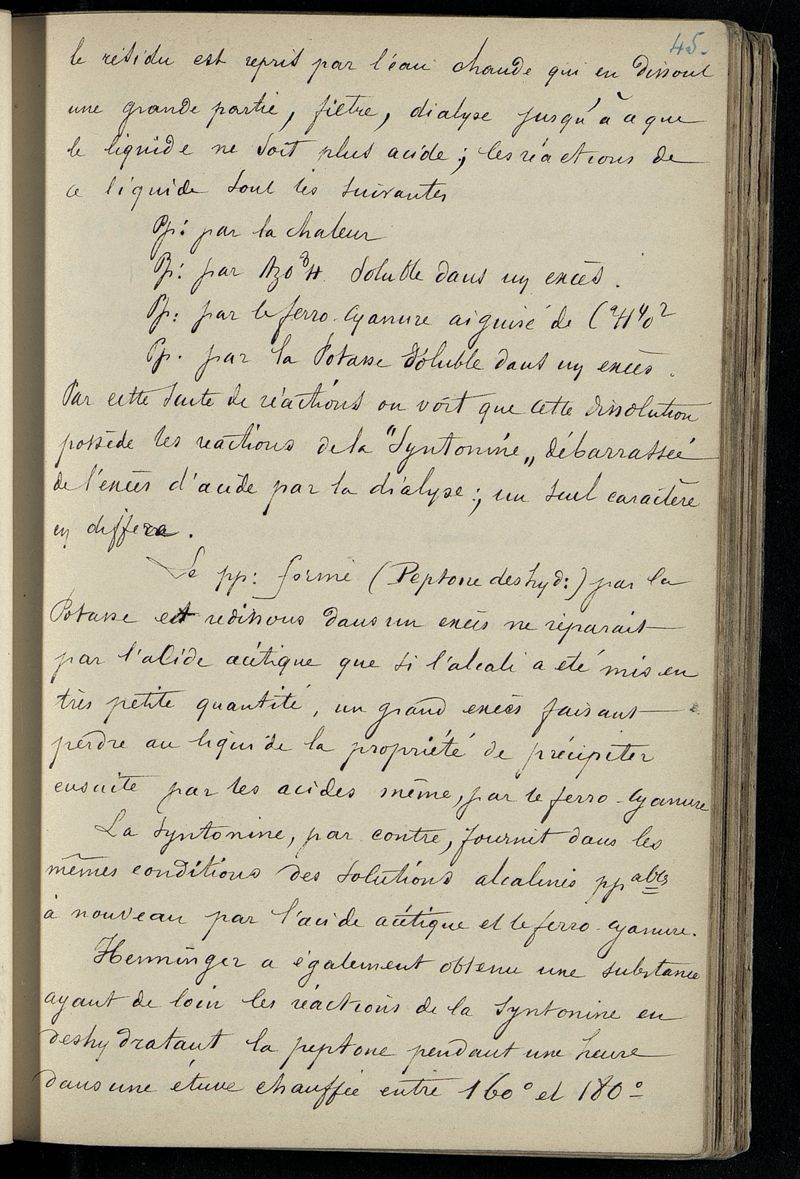 45.
le résidu est repris par l'eau chaude qui en dissout
une grande partie, filtre, dialyse jusqu'à ce que
le liquide ne soit plus acide; les réactions de
ce liquide sont les suivantes
Pp: par la chaleur
Pp: par AzO³H soluble dans un excès.
Pp: par le ferro-cyanure aiguisé de C²H⁴O²
Pp. par la Potasse soluble dans un excès.
Par cette suite de réactions on voit que cette dissolution
possède les reactions de la "Syntonine„ débarrassée
de l'excès d'acide par la dialyse; un seul caractère
en differe.
Le pp: formé (Peptone deshyd:) par la
Potasse et redissous dans un excès ne reparait
par l'acide acétique que si l'alcali a eté mis en
très petite quantité, un grand excès faisant
perdre au liquide la propriété de précipiter
ensuite par les acides même, par le ferro-cyanure
La Syntonine, par contre, fournit dans les
mêmes conditions des solutions alcalines ppables
à nouveau par l'acide acétique et le ferro-cyanure.
Henninger a également obtenu une substance
ayant de loin les réactions de la Syntonine en
deshydratant la peptone pendant une heure
dans une étuve chauffée entre 160° et 180°